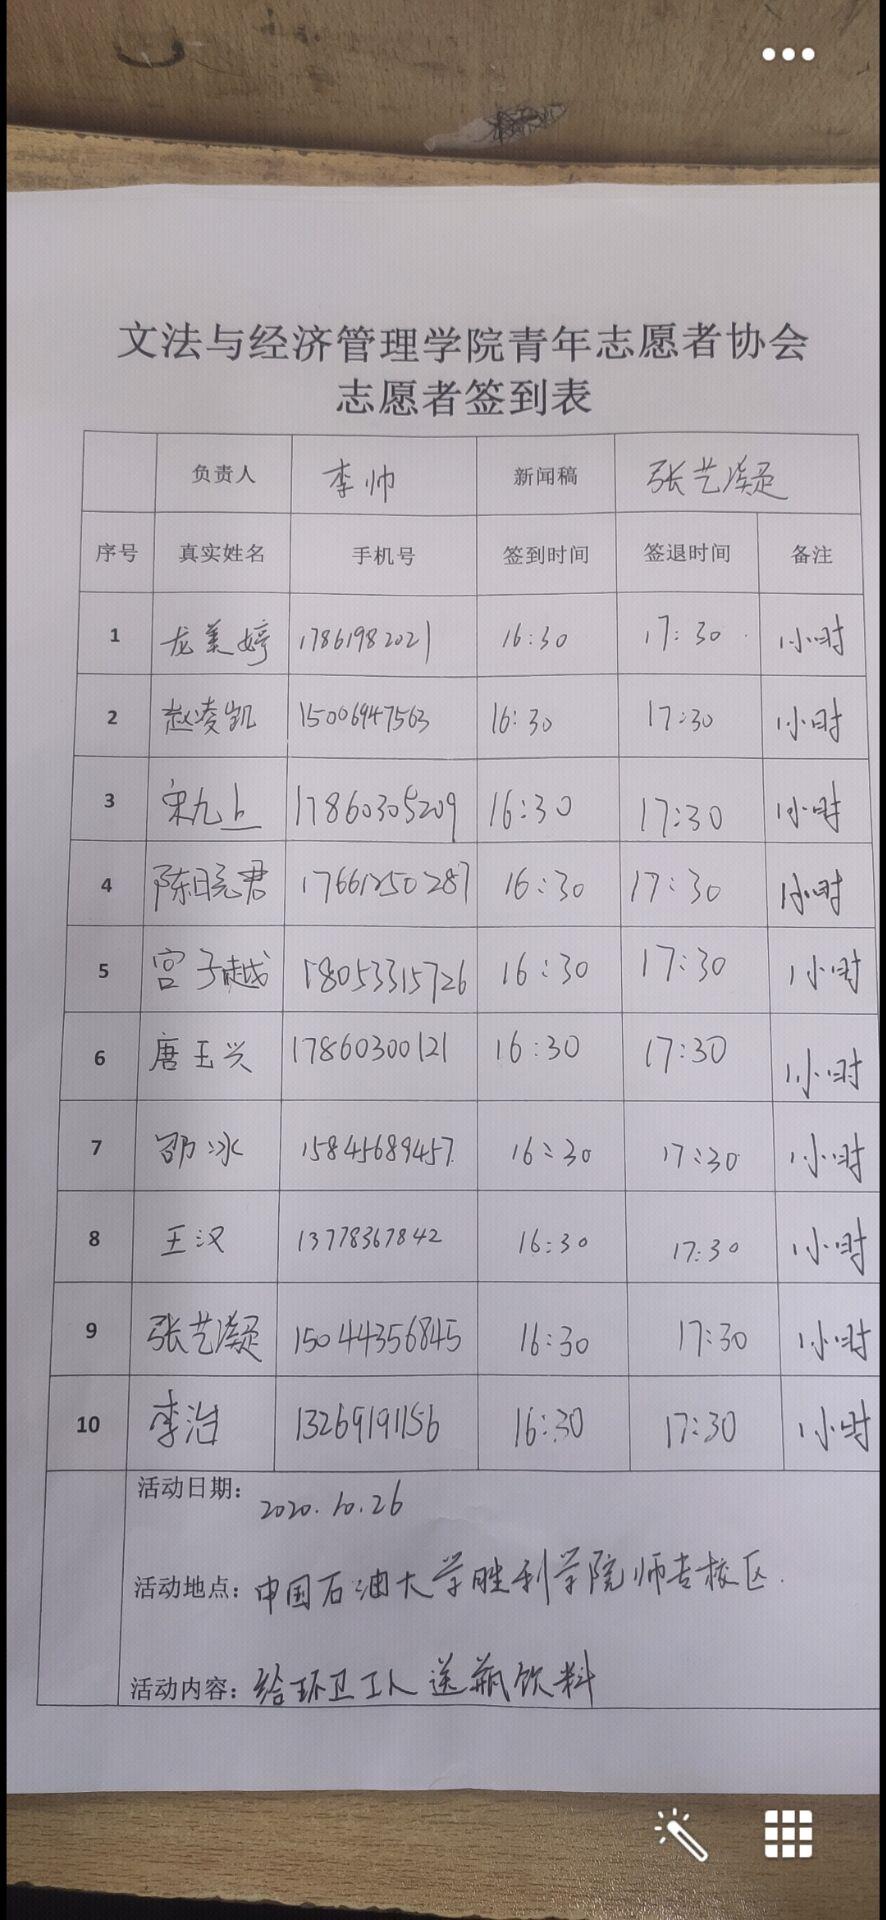 文法与经济管理学院青年志愿者协会
志愿者签到表
负责人 李帅 新闻稿 张艺凝
序号 真实姓名 手机号 签到时间 签退时间 备注
1 龙美婷 17861982021 16:30 17:30 1小时
2 赵凌凯 15006947563 16:30 17:30 1小时
3 宋九上 17860305209 16:30 17:30 1小时
4 陈晓君 17661250287 16:30 17:30 1小时
5 宫子越 18053315726 16:30 17:30 1小时
6 唐玉兴 17860300121 16:30 17:30 1小时
7 邵冰 15845689457 16:30 17:30 1小时
8 王汉 13778367842 16:30 17:30 1小时
9 张艺凝 15044356845 16:30 17:30 1小时
10 李治 13269191156 16:30 17:30 1小时
活动日期: 2020.10.26
活动地点: 中国石油大学胜利学院师专校区.
活动内容: 给环卫工人送瓶饮料